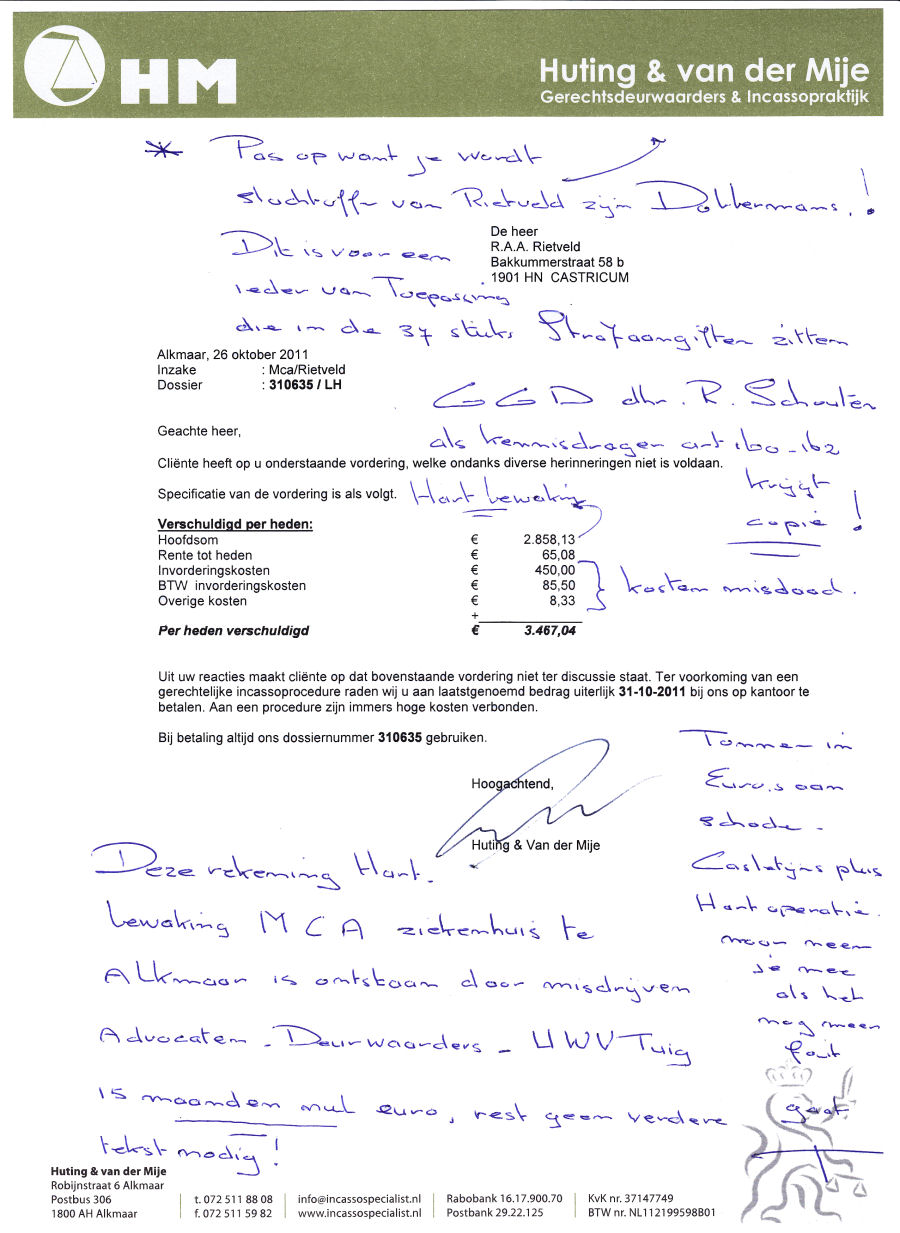 HM
Huting & van der Mije
Gerechtsdeurwaarders & Incassopraktijk
* Pas op want je wordt
slachtoffr van Rietveld zijn Dobbermans.!
De heer
R.A.A. Rietveld
Bakkummerstraat 58 b
1901 HN CASTRICUM
Dit is voor een
ieder van Toepassing
die in de 37 stuks Strafaangiften zitten
Alkmaar, 26 oktober 2011
Inzake : Mca/Rietveld
Dossier : 310635 / LH
GGD dhr. R. Schouten
als kennisdrager art 160-162
krijgt
copie !
Geachte heer,
Cliënte heeft op u onderstaande vordering, welke ondanks diverse herinneringen niet is voldaan.
Specificatie van de vordering is als volgt.
Hart bewaking
Verschuldigd per heden:
Hoofdsom € 2.858,13
Rente tot heden € 65,08
Invorderingskosten € 450,00
BTW invorderingskosten € 85,50
Overige kosten € 8,33
+
Per heden verschuldigd € 3.467,04
kosten misdaad.
Uit uw reacties maakt cliënte op dat bovenstaande vordering niet ter discussie staat. Ter voorkoming van een
gerechtelijke incassoprocedure raden wij u aan laatstgenoemd bedrag uiterlijk 31-10-2011 bij ons op kantoor te
betalen. Aan een procedure zijn immers hoge kosten verbonden.
Bij betaling altijd ons dossiernummer 310635 gebruiken.
Hoogachtend,
Huting & Van der Mije
Tonnen in
Euro,s aan
schade -
plus
Hart operatie.
maar neem
je mee
als het
nog meer
fout
gaat
Deze rekening Hart.
bewaking MCA ziekenhuis te
Alkmaar is ontstaan door misdrijven
Advocaten - Deurwaarders - UWV Tuig
15 maanden nul euro, rest geen verdere
tekst nodig!
Huting & van der Mije
Robijnstraat 6 Alkmaar
Postbus 306
1800 AH Alkmaar
t. 072 511 88 08
f. 072 511 59 82
info@incassospecialist.nl
www.incassospecialist.nl
Rabobank 16.17.900.70
Postbank 29.22.125
KvK nr. 37147749
BTW nr. NL112199598B01